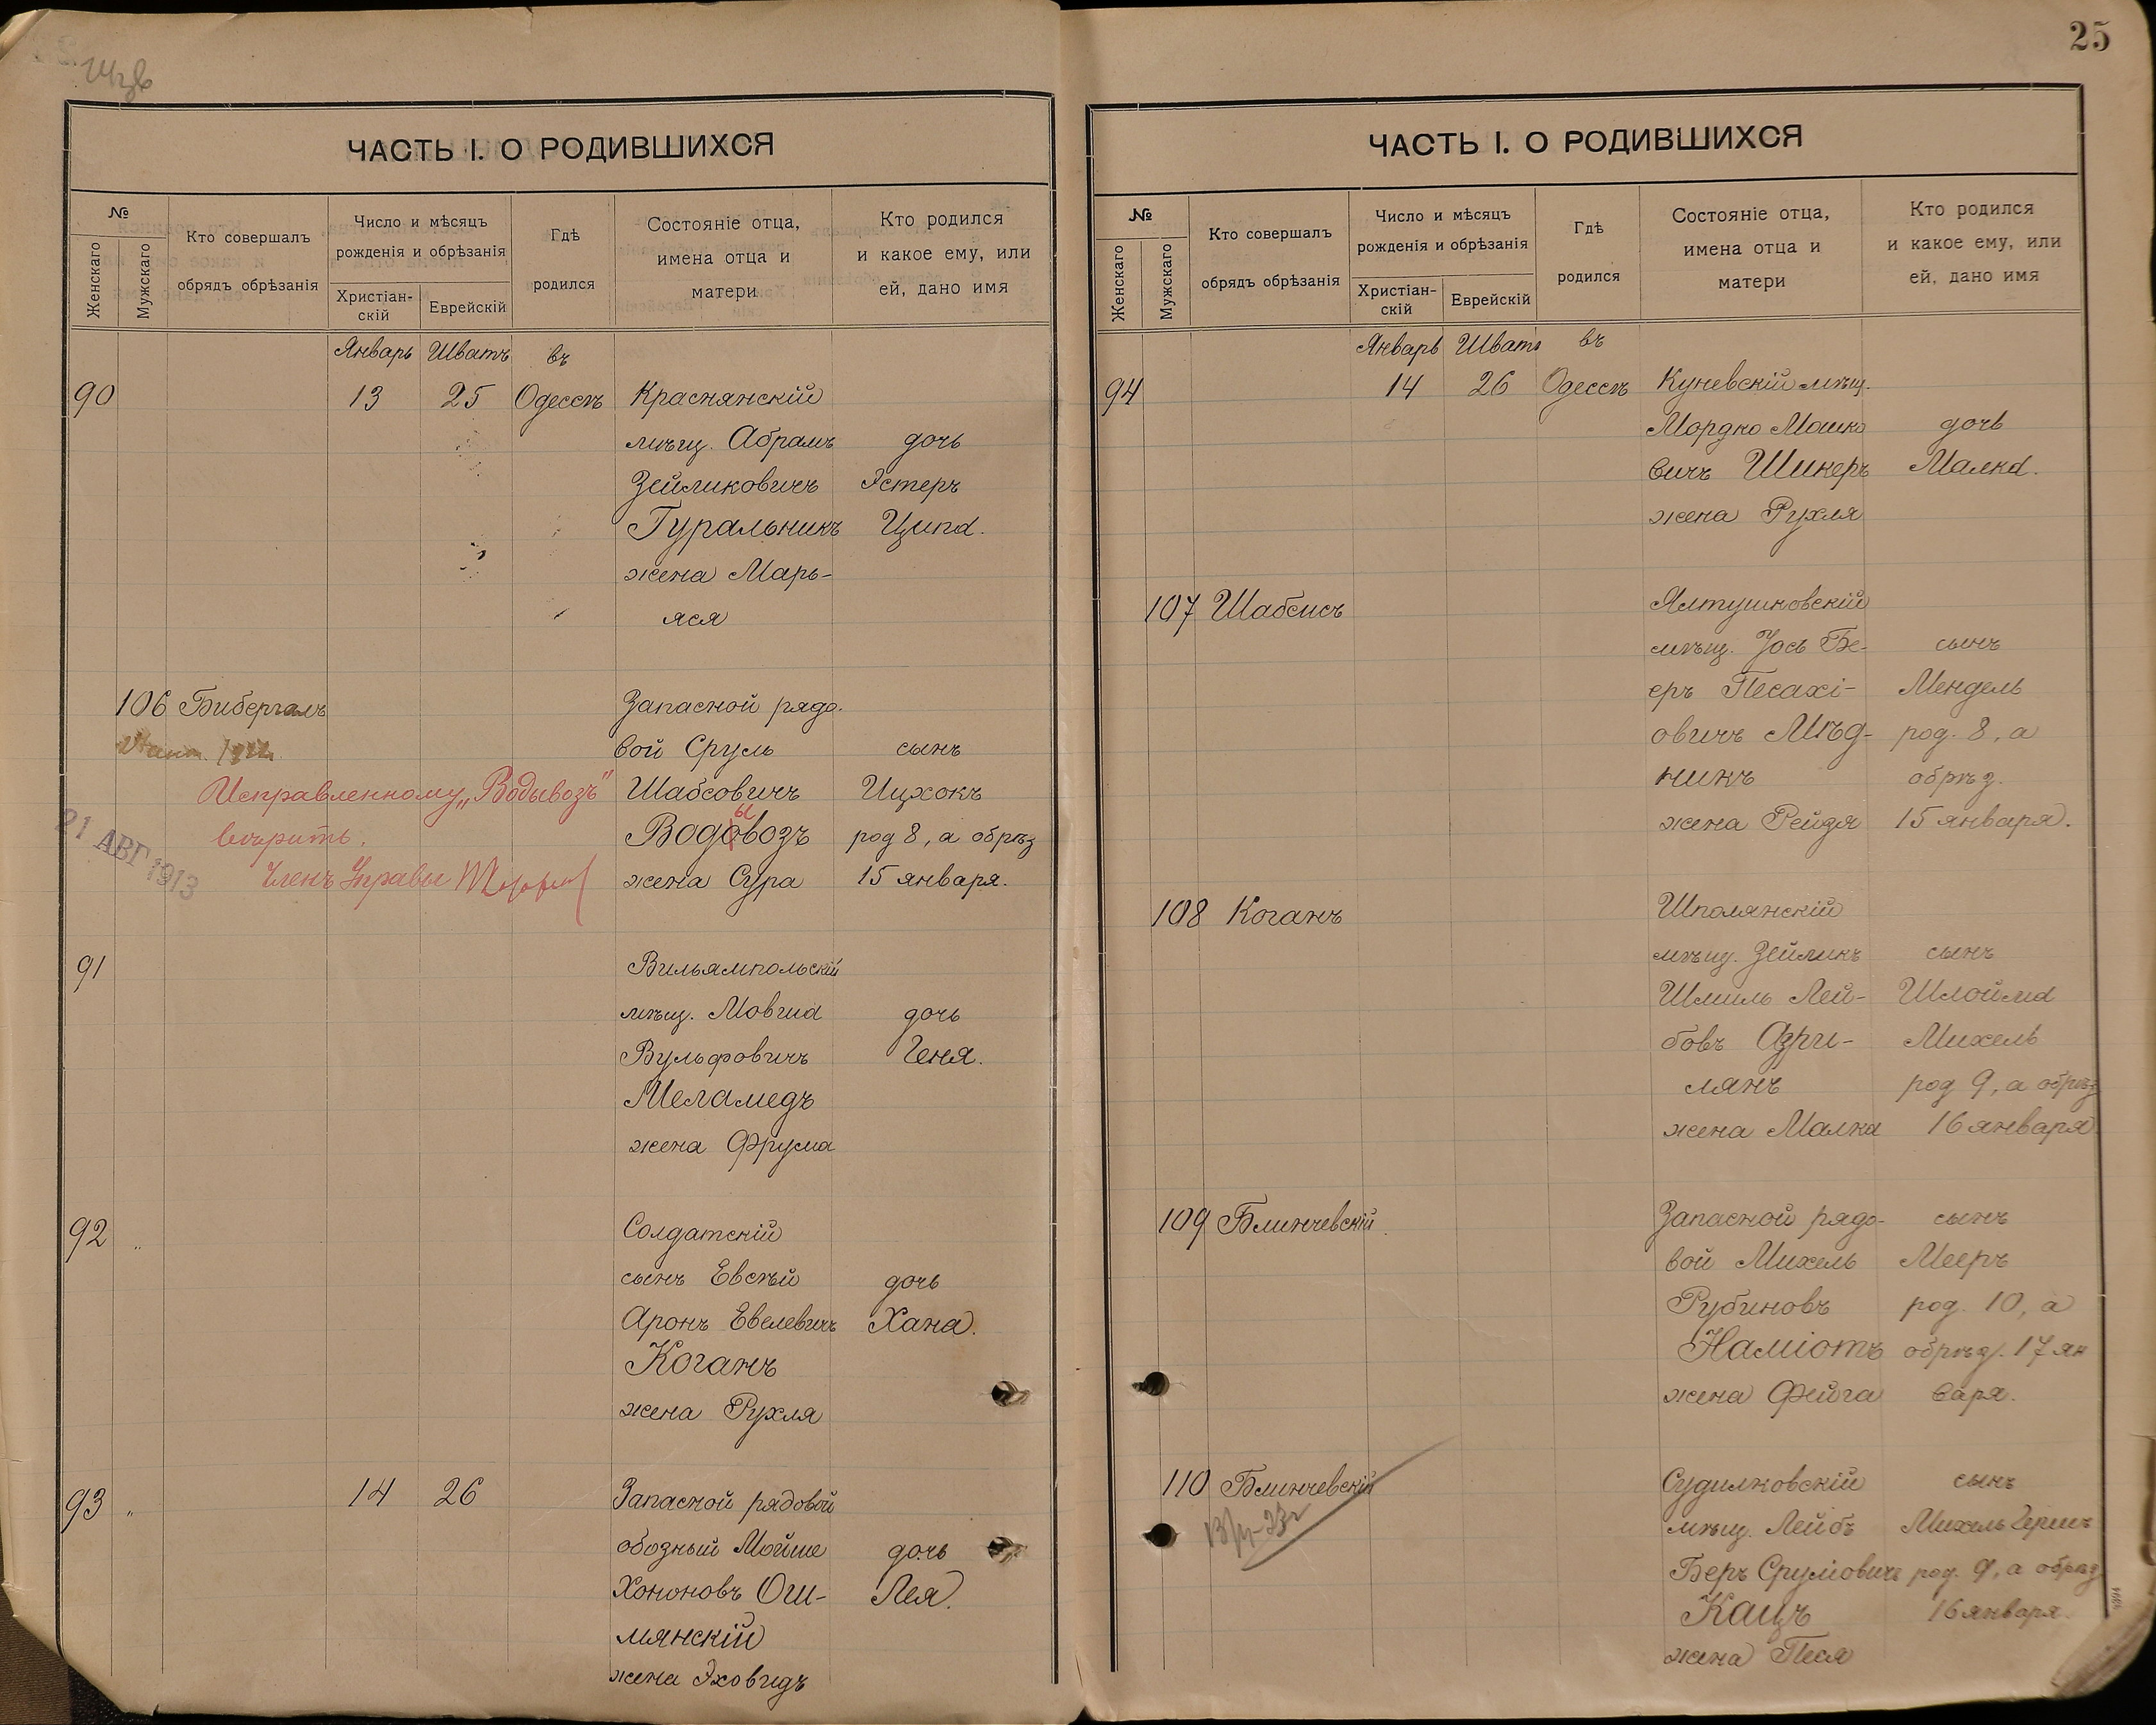 25
ЧАСТЬ I. О РОДИВШИХСЯ
№
Женскаго
Мужскаго
Кто совершалъ
обрядъ обрѣзанія
Число и мѣсяцъ
рожденія и обрѣзанія
Христіан-
скій
Еврейскій
Гдѣ
родился
Состояніе отца,
имена отца и
матери
Кто родился
и какое ему, или
ей, дано имя
Январь Шватъ въ
90 13 25 Одессѣ Краснянскій
мѣщ. Абрамъ дочь
Зейликовичъ Эстеръ
Гуральникъ Ципа.
жена Марь-
яся
106 Бибергалъ Запасной рядо-
вой Сруль сынъ
Исправленному „Водывозъ" Шабсовичъ Ицхокъ
ы
вѣрить. Водовозъ род 8, а обрѣз
21 АВГ 1913
Членъ Управы жена Сура 15 января.
91 Вильямпольскій
мѣщ. Мовша дочь
Вульфовичъ Геня.
Меламедъ
жена Фрума
92 " Солдатскій
сынъ Евсѣй дочь
Аронъ Евелевичъ Хана.
Коганъ
жена Рухля
93 " 14 26 Запасной рядовой
обозный Мойше дочь
Хононовъ Ош- Лея.
мянскій
жена Эховидъ
ЧАСТЬ I. О РОДИВШИХСЯ
№
Женскаго
Мужскаго
Кто совершалъ
обрядъ обрѣзанія
Число и мѣсяцъ
рожденія и обрѣзанія
Христіан-
скій
Еврейскій
Гдѣ
родился
Состояніе отца,
имена отца и
матери
Кто родился
и какое ему, или
ей, дано имя
Январь Шватъ въ
94 14 26 Одессѣ Куневскій мѣщ.
Мордко Мошко дочь
вичъ Шикеръ Малка.
жена Рухля
107 Шабсисъ Ялтушковскій
мѣщ. Іось Бе- сынъ
еръ Песахі- Мендель
овичъ Мѣд- род. 8, а
никъ обрѣз.
жена Рейзя 15 января.
108 Коганъ Шполянскій
мѣщ. Зейликъ сынъ
Шмиль Лей- Шлойма
бовъ Азри- Михель
лянъ род 9, а обрѣз
жена Малка 16 января
109 Блинчевскій Запасной рядо- сынъ
вой Михель Мееръ
Рубиновъ род. 10, а
Наміотъ обрѣз. 17 ян
жена Фейга варя.
110 Блинчевскій Судилковскій сынъ
мѣщ. Лейбъ Михель Гершъ
Беръ Сруліовичъ род. 9, а обрѣз
Кацъ 16 января.
жена Песя